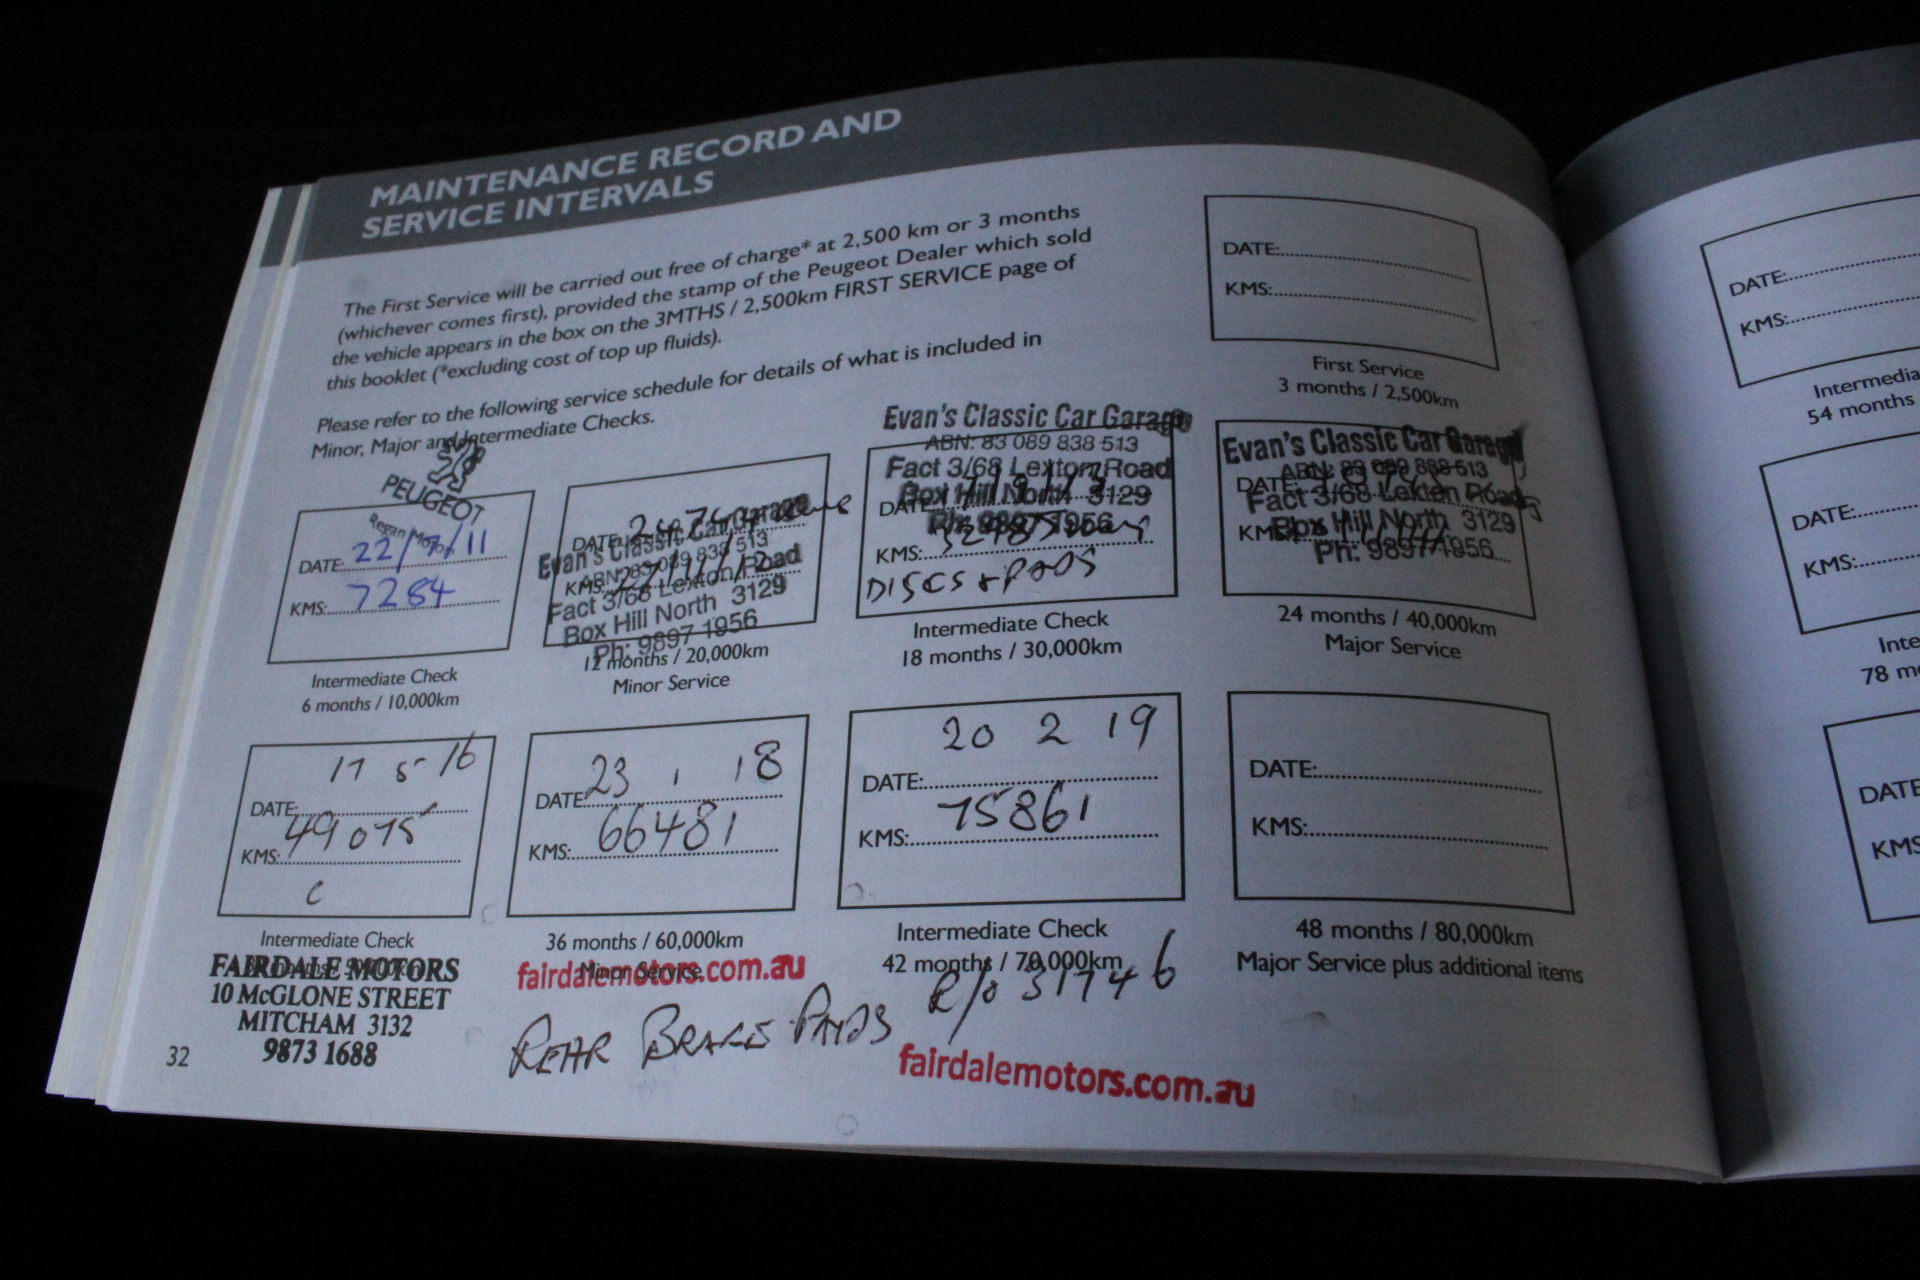 MAINTENANCE RECORD AND
SERVICE INTERVALS
The First Service will be carried out free of charge* at 2,500 km or 3 months
(whichever comes first), provided the stamp of the Peugeot Dealer which sold
the vehicle appears in the box on the 3MTHS / 2,500km FIRST SERVICE page of
this booklet (*excluding cost of top up fluids).
Please refer to the following service schedule for details of what is included in
Minor, Major and Intermediate Checks.
DATE:
KMS:
First Service
3 months / 2,500km
PEUGEOT
Regan Motors
DATE: 22/7/11
KMS: 7284
Intermediate Check
6 months / 10,000km
DATE:
Evan's Classic Car Garage
KMS:
ABN: 83 089 838 513
Fact 3/68 Lexton Road
Box Hill North 3129
Ph: 9897 1956
12 months / 20,000km
Minor Service
Evan's Classic Car Garage
ABN: 83 089 838 513
Fact 3/68 Lexton Road
Box Hill North 3129
DATE:
Ph: 9897 1956
KMS:
DISCS + PADS
Intermediate Check
18 months / 30,000km
Evan's Classic Car Garage
ABN: 83 089 838 513
DATE:
Fact 3/68 Lexton Road
KMS:
Box Hill North 3129
Ph: 9897 1956
24 months / 40,000km
Major Service
17 5 16
DATE:
49075
KMS:
C
Intermediate Check
FAIRDALE MOTORS
10 McGLONE STREET
MITCHAM 3132
9873 1688
23 1 18
DATE:
66481
KMS:
36 months / 60,000km
Minor Service
fairdalemotors.com.au
REAR BRAKE PADS
20 2 19
DATE:
75861
KMS:
Intermediate Check
42 months / 70,000km
R/o 31746
fairdalemotors.com.au
DATE:
KMS:
48 months / 80,000km
Major Service plus additional items
32
DATE:
KMS:
Intermedia
54 months
DATE:
KMS:
Inte
78 m
DATE
KMS